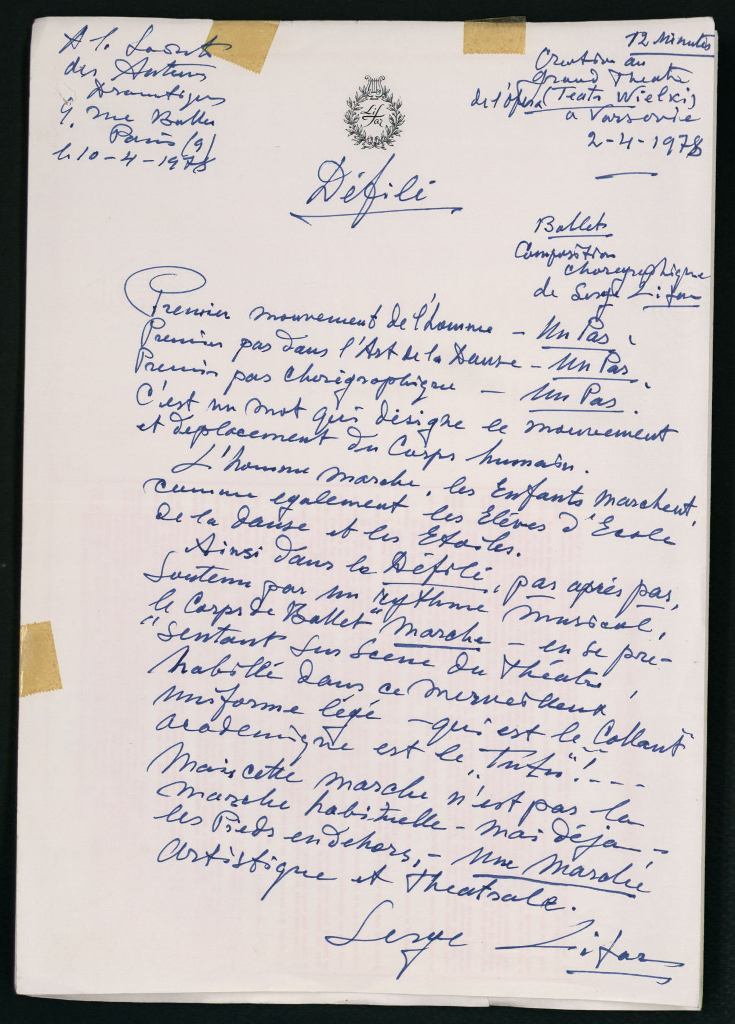 A l. Société
des Auteurs
Dramatiques
9, rue Ballu
Paris (9)
le 10-4-1978
12 Minutes
Creation au
Grand Theatre
de l'Opéra (Teatr Wielki)
a Varsovie
2-4-1978
Lifar
Défilé
Ballets
Composition
choregraphique
de Serge Lifar
Premier mouvement de l'homme - Un Pas.
Premier pas dans l'Art de la Danse - Un Pas.
Premier pas Chorégraphique - Un Pas.
C'est un mot qui désigne le mouvement
et déplacement du Corps humain.
L'homme marche, les Enfants marchent,
comme egalement les Elèves d'Ecole
de la danse et les Etoiles.
Ainsi dans le Défilé, pas après pas,
soutenu par un rythme musical,
le Corps de Ballet "marche - en se pré-
"sentant sur Scene du Théatre,
habillé dans ce merveilleux
uniforme légé - qui est le "Collant"
academique est le "Tutu"!---
Mais cette marche n'est pas la
marche habituelle - mai déja -
les Pieds en dehors, - Une Marche
Artistique et Theatrale.
Serge Lifar